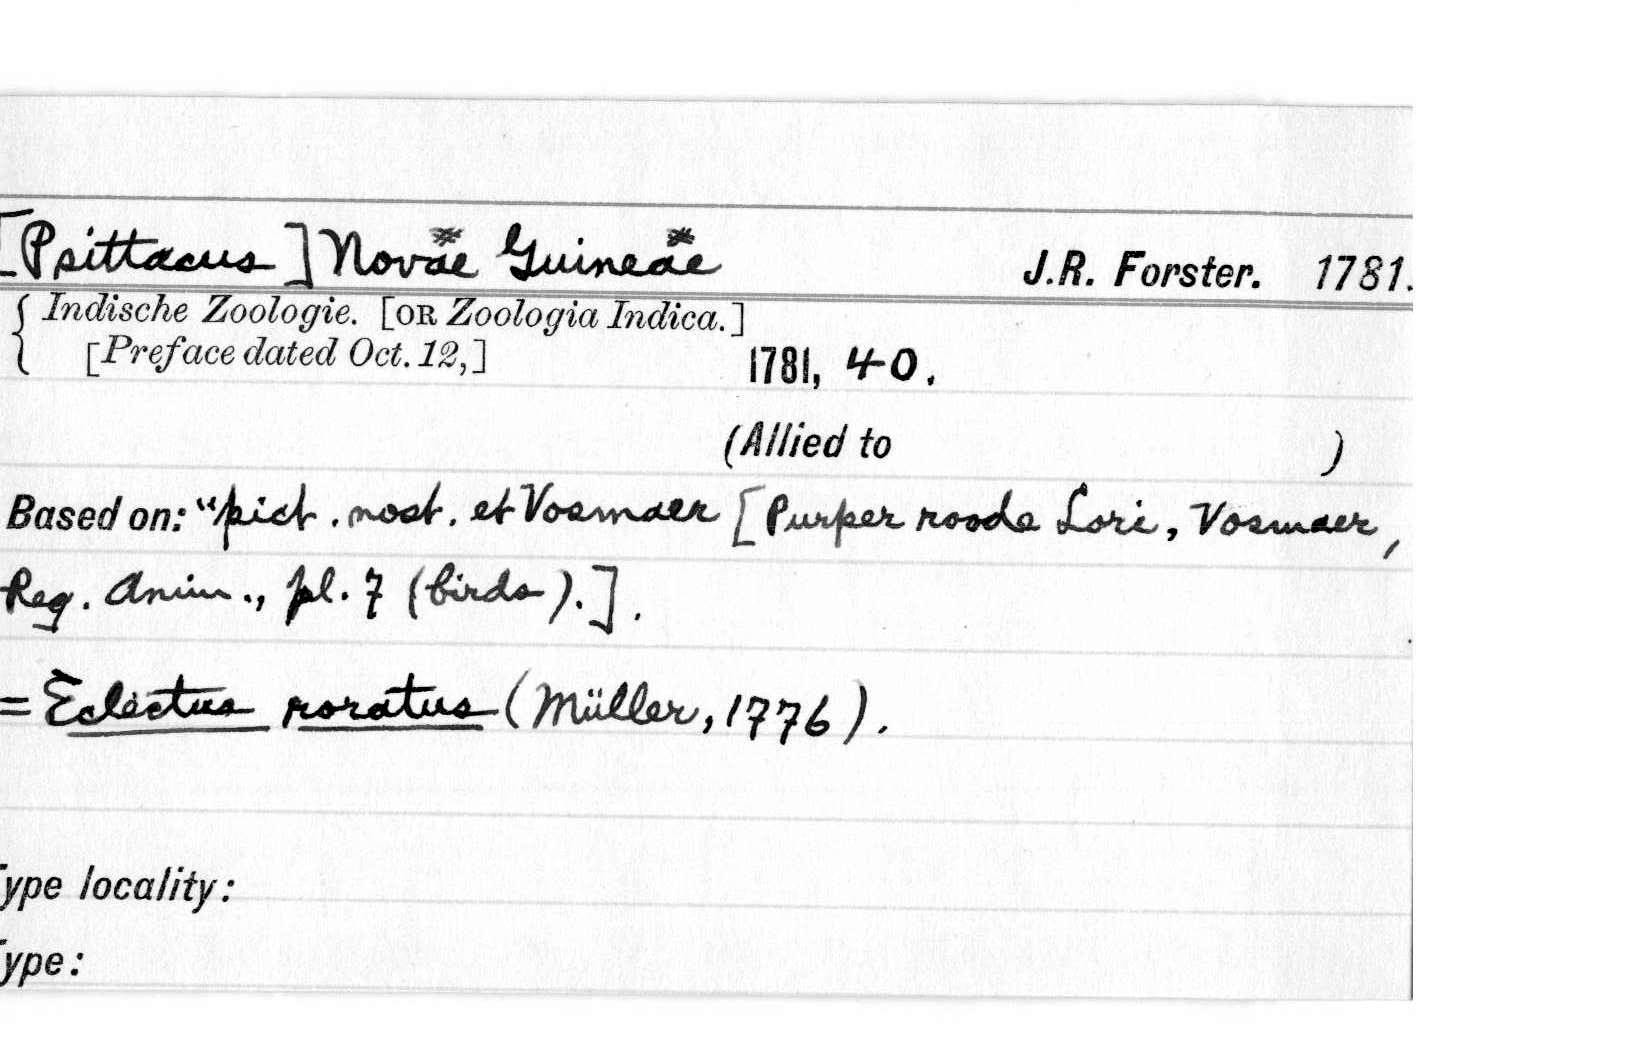 [Psittacus] Novae Guineae J.R. Forster. 1781.
{ Indische Zoologie. [OR Zoologia Indica.]
[Preface dated Oct. 12,] 1781, 40.
(Allied to )
Based on: "pict. nost. et Vosmaer [Purper roode Lori, Vosmaer,
Reg. Anim., pl. 7 (birds).].
= Eclectus roratus (Müller, 1776).
Type locality:
Type: